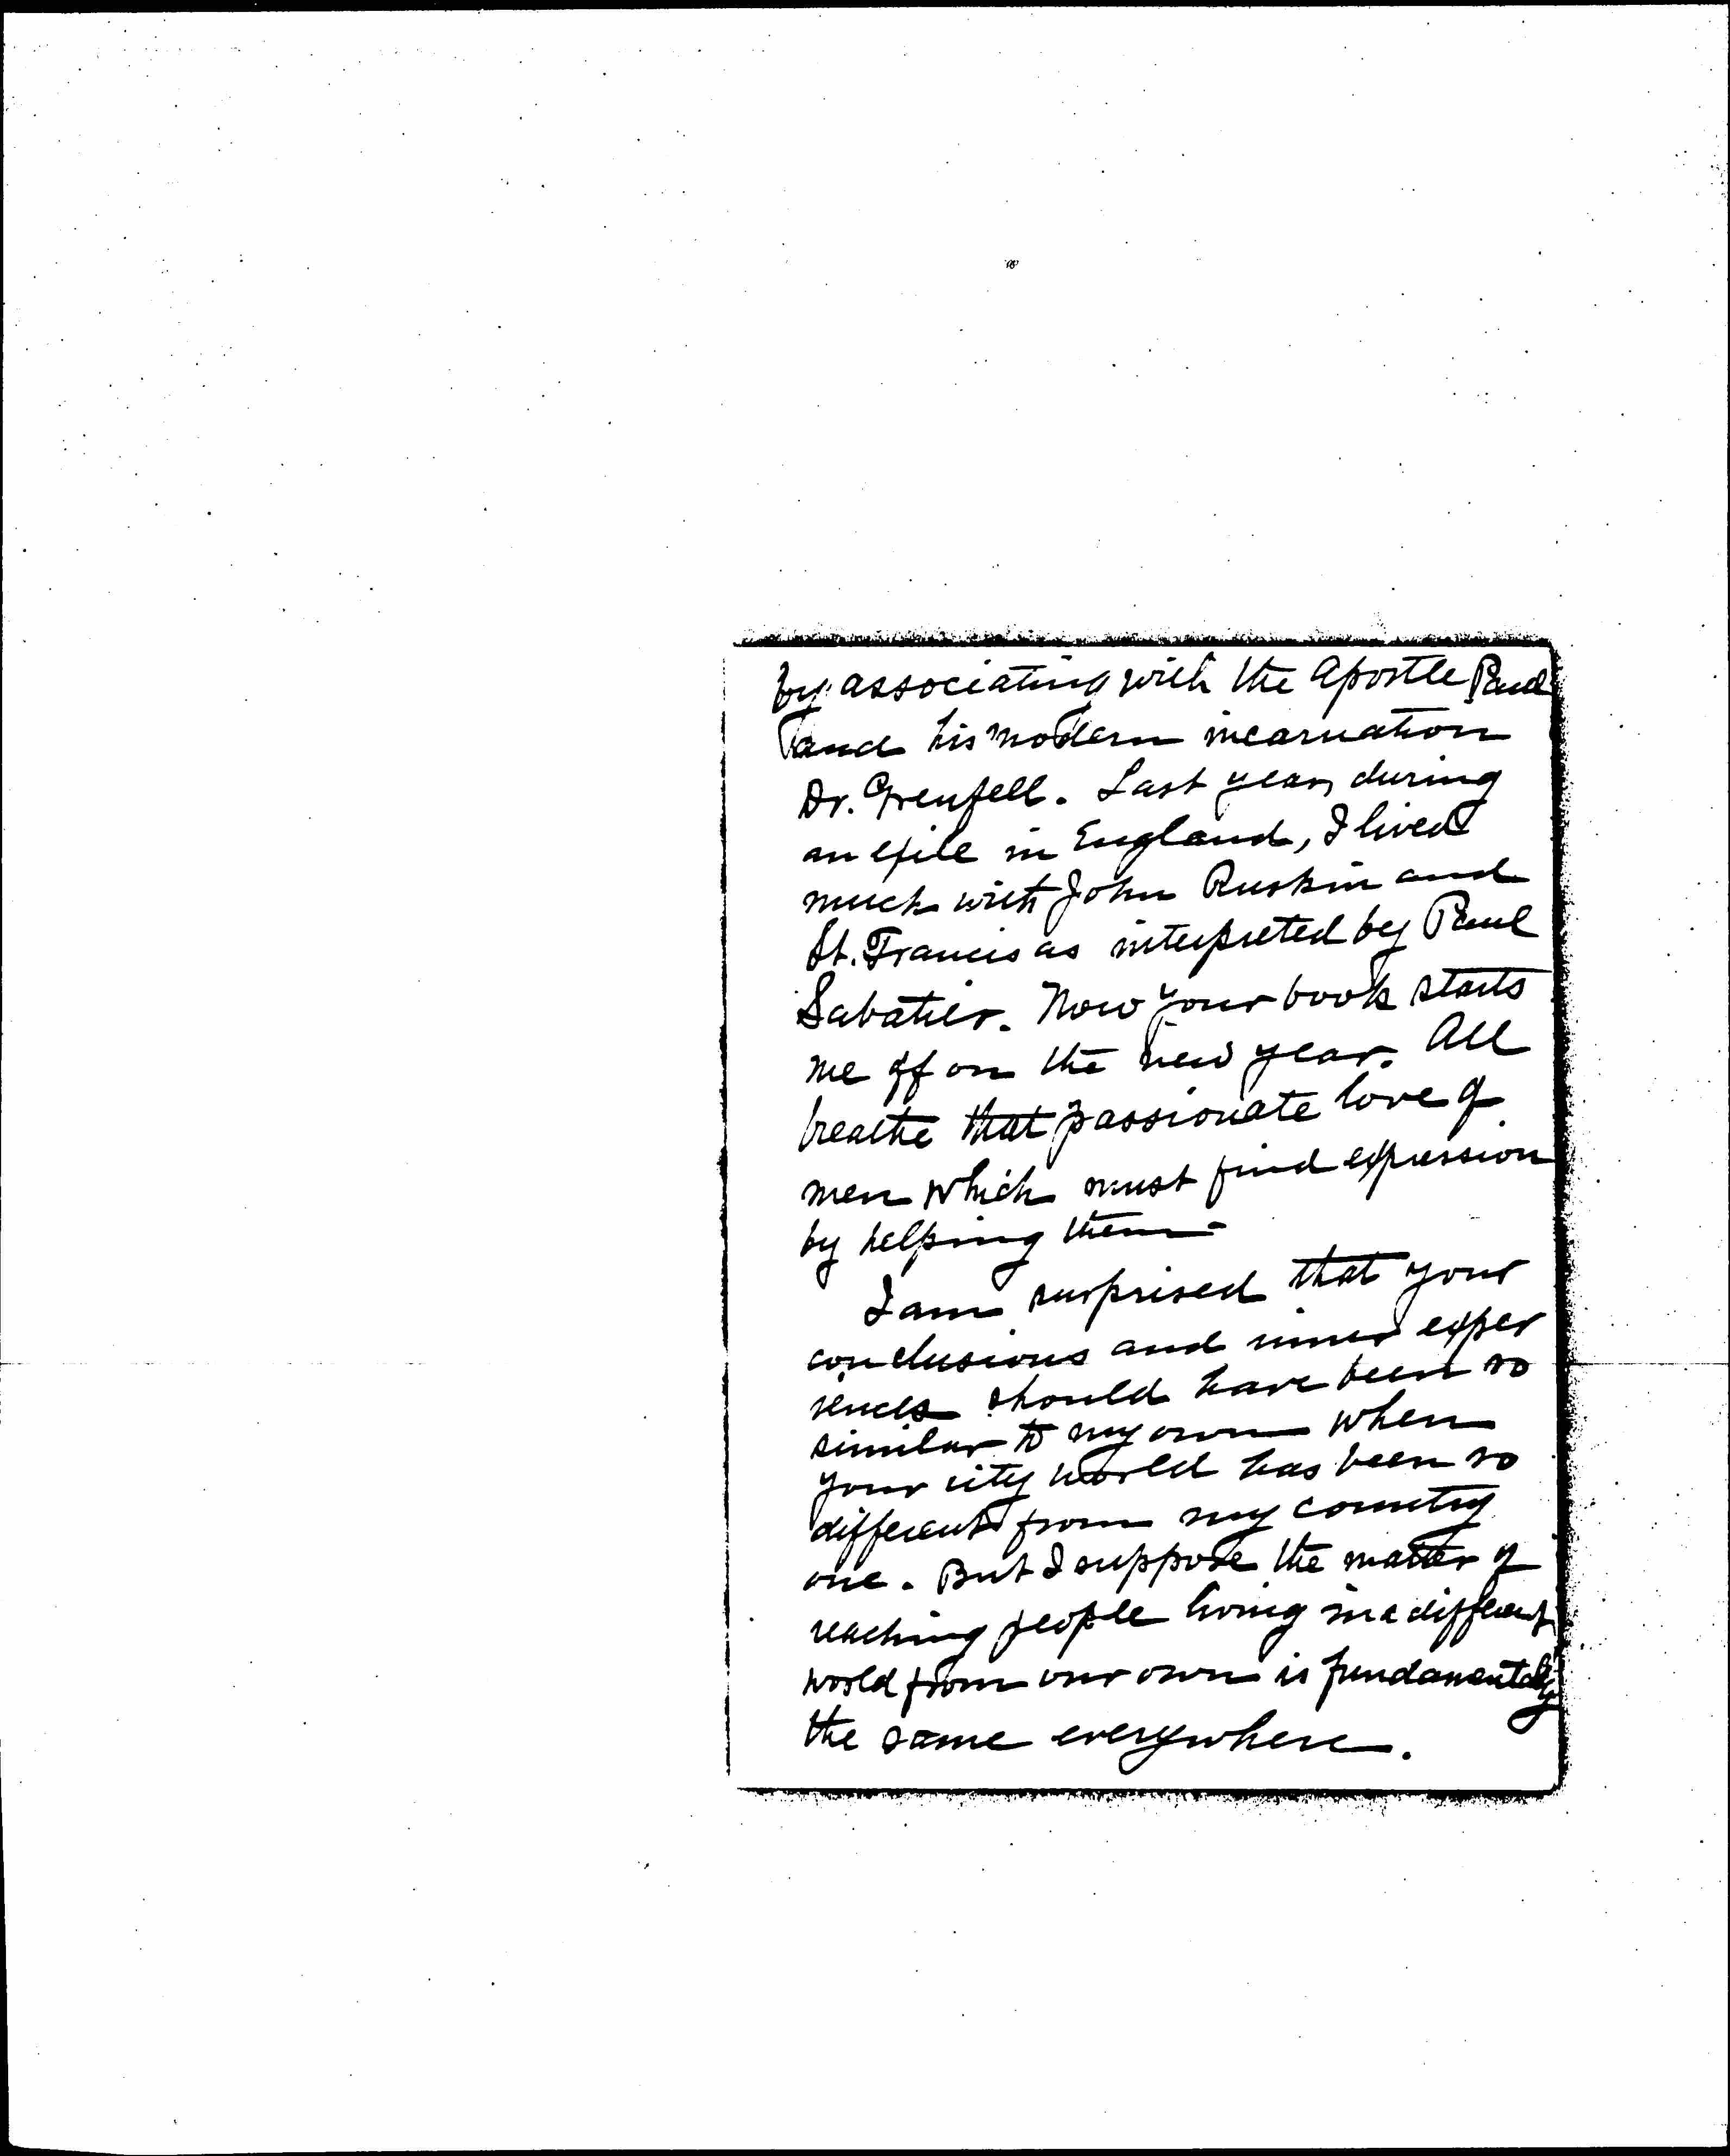 by associating with the Apostle Paul
and his modern incarnation
Dr. Grenfell. Last year, during
an exile in England, I lived
much with John Ruskin and
St. Francis as interpreted by Paul
Sabatier. Now your book starts
me off on the new year. All
breathe that passionate love of
men which must find expression
by helping them.
I am surprised that your
conclusions and inner exper
iences should have been so
similar to my own when
your city world has been so
different from my country
one. But I suppose the matter of
reaching people living in a different
world from our own is fundamentally
the same everywhere.